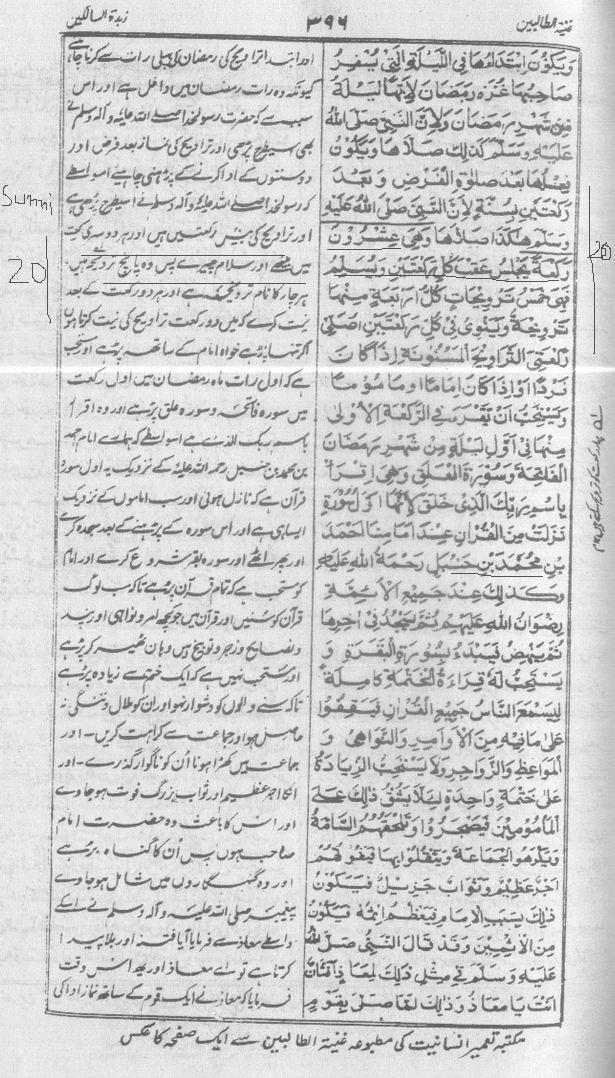 غنية الطالبين
۳۹۶
زبدة السالكين
وَيَكُوْنُ ابْتِدَاءُهَا فِي اللَّيْلَةِ الَّتِيْ يُسْفِرُ
صَاحِبُهَا غُرَّةَ رَمَضَانَ لِاَنَّهَا لَيْلَةٌ
مِنْ شَهْرِ رَمَضَانَ وَلِاَنَّ النَّبِيَّ صَلَّى اللهُ
عَلَيْهِ وَسَلَّمَ كَذٰلِكَ صَلَّاهَا وَيَكُوْنُ
فِعْلُهَا بَعْدَ صَلٰوةِ الْفَرْضِ وَبَعْدَ
رَكْعَتَيْنِ بِسُنَّةٍ لِاَنَّ النَّبِيَّ صَلَّى اللهُ عَلَيْهِ
وَسَلَّمَ هٰكَذَا صَلَّاهَا وَهِيَ عِشْرُوْنَ
رَكْعَةً يَجْلِسُ عَقِبَ كُلِّ رَكْعَتَيْنِ وَيُسَلِّمُ
فَهِيَ خَمْسُ تَرْوِيْحَاتٍ كُلُّ اَرْبَعَةٍ مِنْهَا
تَرْوِيْحَةٌ وَيَنْوِيْ فِيْ كُلِّ رَكْعَتَيْنِ اُصَلِّيْ
رَكْعَتَيِ التَّرَاوِيْحِ الْمَسْنُوْنَةِ اِذَا كَانَ
فَرْدًا اَوْ اِذَا كَانَ اِمَامًا وَمَامُوْمًا
وَيُسْتَحَبُّ اَنْ يَقْرَءَ فِي الرَّكْعَةِ الْاُوْلٰى
مِنْهَا فِيْ اَوَّلِ لَيْلَةٍ مِنْ شَهْرِ رَمَضَانَ
الْفَاتِحَةَ وَسُوْرَةَ الْعَلَقِ وَهِيَ اِقْرَأْ
بِاسْمِ رَبِّكَ الَّذِيْ خَلَقَ لِاَنَّهَا اَوَّلُ سُوْرَةٍ
نَزَلَتْ مِنَ الْقُرْاٰنِ عِنْدَ اِمَامِنَا اَحْمَدَ
بْنِ مُحَمَّدِ بْنِ حَنْبَلٍ رَحْمَةُ اللهِ عَلَيْهِ
وَكَذٰلِكَ عِنْدَ جَمِيْعِ الْاَئِمَّةِ
رِضْوَانُ اللهِ عَلَيْهِمْ ثُمَّ يَسْجُدُ فِيْ اٰخِرِهَا
ثُمَّ يَنْهَضُ فَيَبْدَءُ بِسُوْرَةِ الْبَقَرَةِ وَ
يُسْتَحَبُّ لَهُ قِرَاءَةُ الْخَتْمَةِ كَامِلَةً
لِيَسْمَعَ النَّاسُ جَمِيْعَ الْقُرْاٰنِ فَيَقِفُوْا
عَلٰى مَا فِيْهِ مِنَ الْاَوَامِرِ وَالنَّوَاهِيْ وَ
الْمَوَاعِظِ وَالزَّوَاجِرِ وَلَا يُسْتَحَبُّ الزِّيَادَةُ
عَلٰى خَتْمَةٍ وَاحِدَةٍ لِئَلَّا يَشُقَّ ذٰلِكَ عَلَى
الْمَأْمُوْمِيْنَ فَيَضْجَرُوْا وَتَلْحَقُهُمُ السَّامَةُ
وَيَكْرَهُوا الْجَمَاعَةَ وَيَتَثَقَّلُوْا بِهَا فَيَفُوْتُهُمْ
اَجْرٌ عَظِيْمٌ وَثَوَابٌ جَزِيْلٌ فَيَكُوْنُ
ذٰلِكَ بِسَبَبِ الْاِمَامِ فَيَعْظُمُ اِثْمُهُ فَيَكُوْنُ
مِنَ الْاٰثِمِيْنَ وَقَدْ قَالَ النَّبِيُّ صَلَّى اللهُ
عَلَيْهِ وَسَلَّمَ فِيْ مِثْلِ ذٰلِكَ لِمُعَاذٍ اَفَتَّانٌ
اَنْتَ يَا مُعَاذُ وَذٰلِكَ لَمَّا صَلّٰى بِقَوْمٍ
اور ابتدا تراویح کی رمضان کی پہلی رات سے کرنا چاہئے
کیونکہ وہ رات رمضان میں داخل ہے اور اس
سبب سے کہ حضرت رسولخدا صلے اللہ علیہ وآلہ وسلم نے
بھی اسیطرح پڑھی اور تراویح کی نماز بعد فرض اور
دو سنتوں کے ادا کرنے کے پڑھنی چاہئے اسواسطے
کہ رسولخدا صلے اللہ علیہ وآلہ وسلم نے اسیطرح پڑھی ہے
اور تراویح کی بیس رکعتیں ہیں اور ہر دوسری رکعت
میں بیٹھے اور سلام پھیرے پس وہ پانچ ترویحہ ہیں
ہر چار کا نام ترویحہ ہے اور ہر دو رکعت کے بعد
نیت کرے کہ میں دو رکعت تراویح کی نیت کرتا ہوں
اگر تنہا پڑھے خواہ امام کے ساتھ پڑھے اور مستحب
ہے کہ اول رات ماہ رمضان میں اول رکعت
میں سورہ فاتحہ و سورہ علق پڑھے اور وہ اقرأ
باسم ربک الذی ہے اسواسطے کہ ہمارے امام احمد
بن محمد بن حنبل رحمۃ اللہ علیہ کے نزدیک یہ اول سورۃ
قرآن ہے کہ نازل ہوئی اور سب اماموں کے نزدیک
ایسا ہی ہے اور اس سورہ کے پڑھنے کے بعد سجدہ کرے
اور پھر اٹھے اور سورہ بقر شروع کرے اور امام
کو مستحب ہے کہ تمام قرآن پڑھے تاکہ سب لوگ
قرآن کو سنیں اور قرآن میں جو کچھ امر و نواہی اور پند
و نصایح و زجر و توبیخ ہیں وہاں ٹھیر کر پڑھے
اور مستحب نہیں ہے کہ ایک ختم سے زیادہ پڑھے
تاکہ سننے والوں کو دشوار نہ ہو اور ان کو ملال و تنگی نہ
حاصل ہو اور جماعت سے کراہت کریں۔ اور
جماعت میں کھڑا ہونا اُن کو ناگوار گذرے۔ اور
انکا اجر عظیم اور ثواب بزرگ فوت ہو جاوے
اور اس کا باعث وہ حضرت امام
صاحب ہوں پس اُن کا گناہ بڑھے
اور وہ گنہگاروں میں شامل ہو جاوے
پیغمبر صلی اللہ علیہ وآلہ وسلم نے ایسے
واسطے معاذ سے فرمایا آیا فتنہ اور بلا پیدا
کرتا ہے تو اے معاذ اور یہ اس وقت
فرمایا کہ معاذ نے ایک قوم کے ساتھ نماز ادا کی
Sunni
20
20
مکتبہ تعمیر انسانیت کی مطبوعہ غنیۃ الطالبین سے ایک صفحہ کا عکس